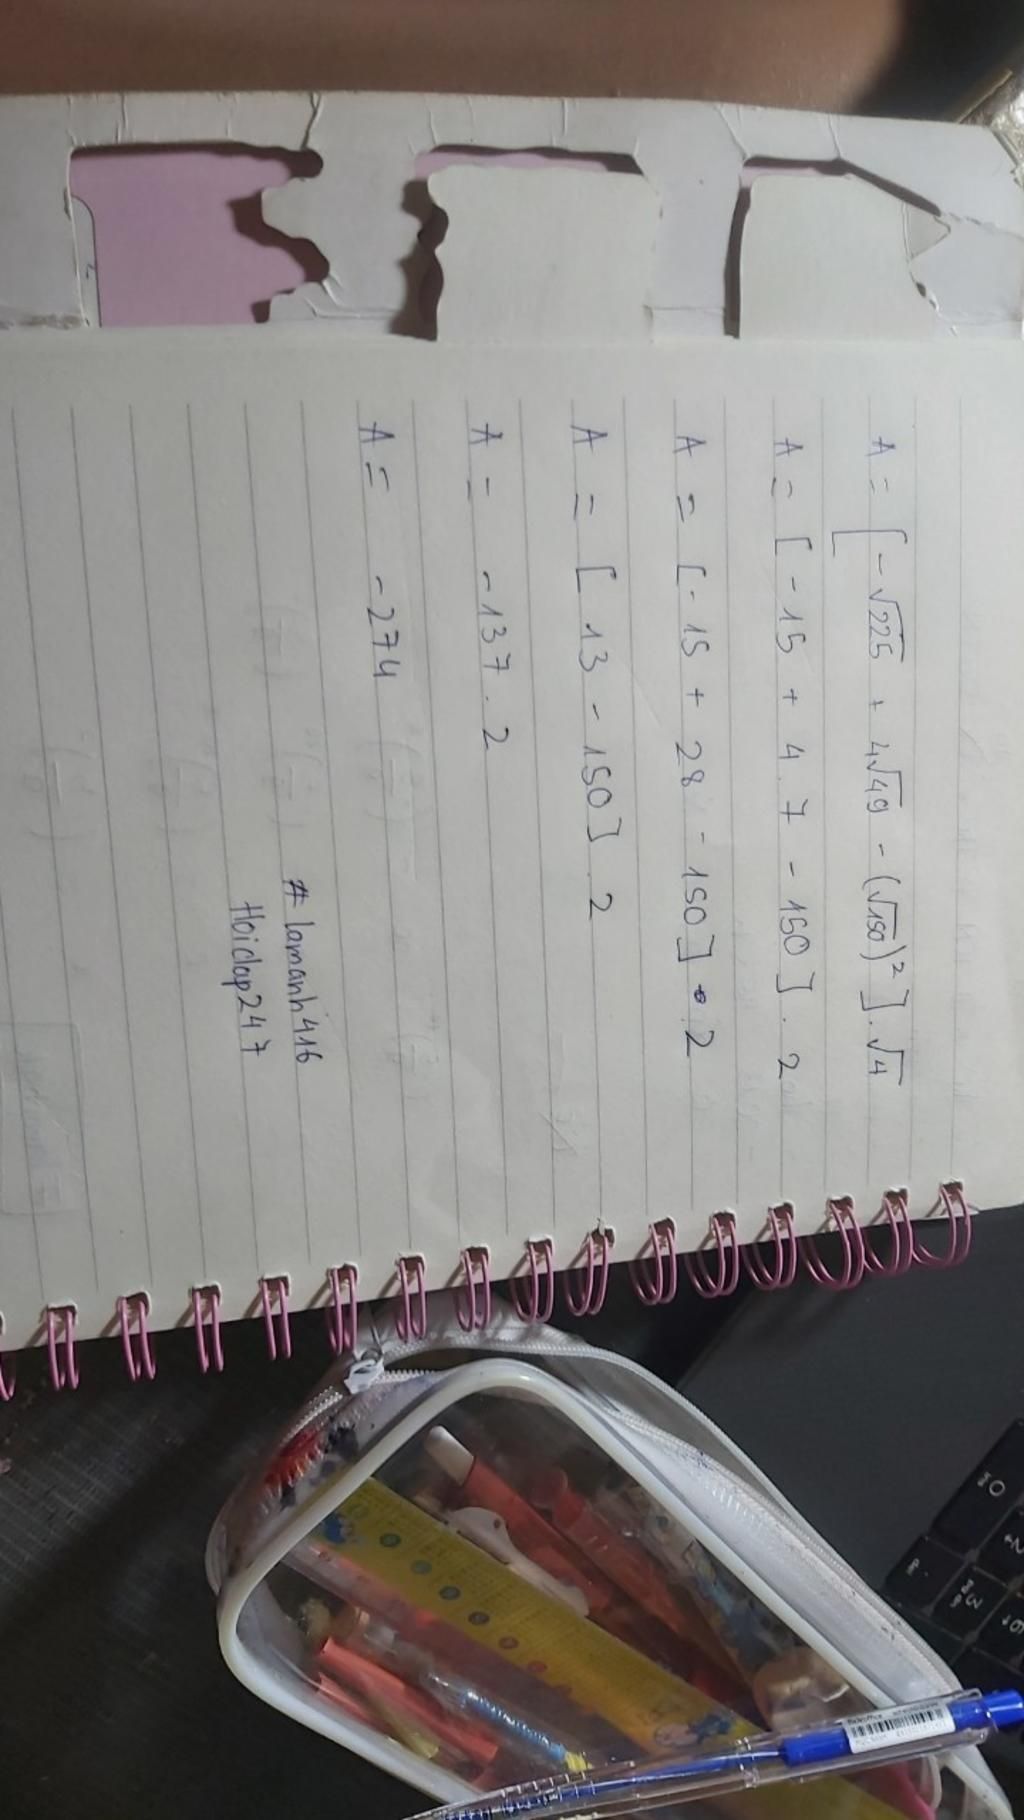 A = [-√225 + 4√49 - (√150)²] . √4
A = [-15 + 4 . 7 - 150] . 2
A = [-15 + 28 - 150] . 2
A = [13 - 150] . 2
A = -137 . 2
A = -274
# lamanh416
Hoidap247